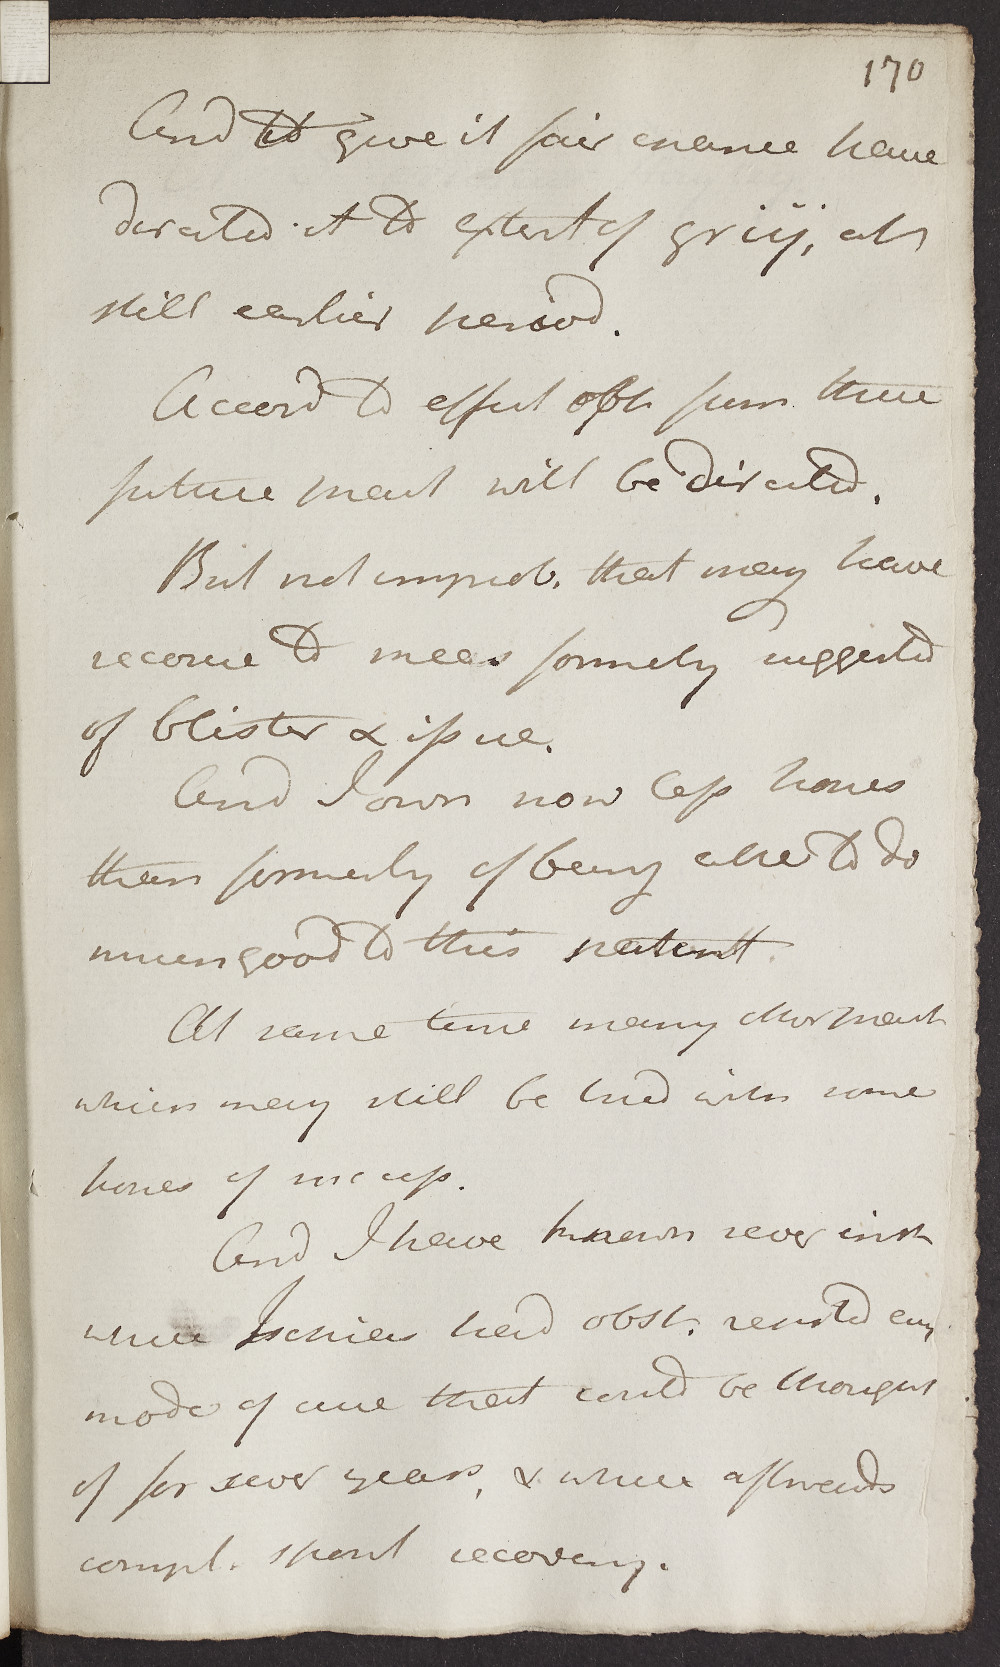 170
And to give it fair chance have
directed it to extent of gr iij, at
still earlier period.
Accord to effect obt from these
future pract will be directed.
But not improb. that may have
recourse to meas formerly suggested
of blister & issue.
And I own now less hopes
than formerly of being able to do
much good to this patient.
At same time many other pract
which may still be tried with some
hopes of success.
And I have known sever inst
where Ischias had obst. resisted every
mode of cure that could be thought
of for sever years, & where afterwards
compl. spont recovery.